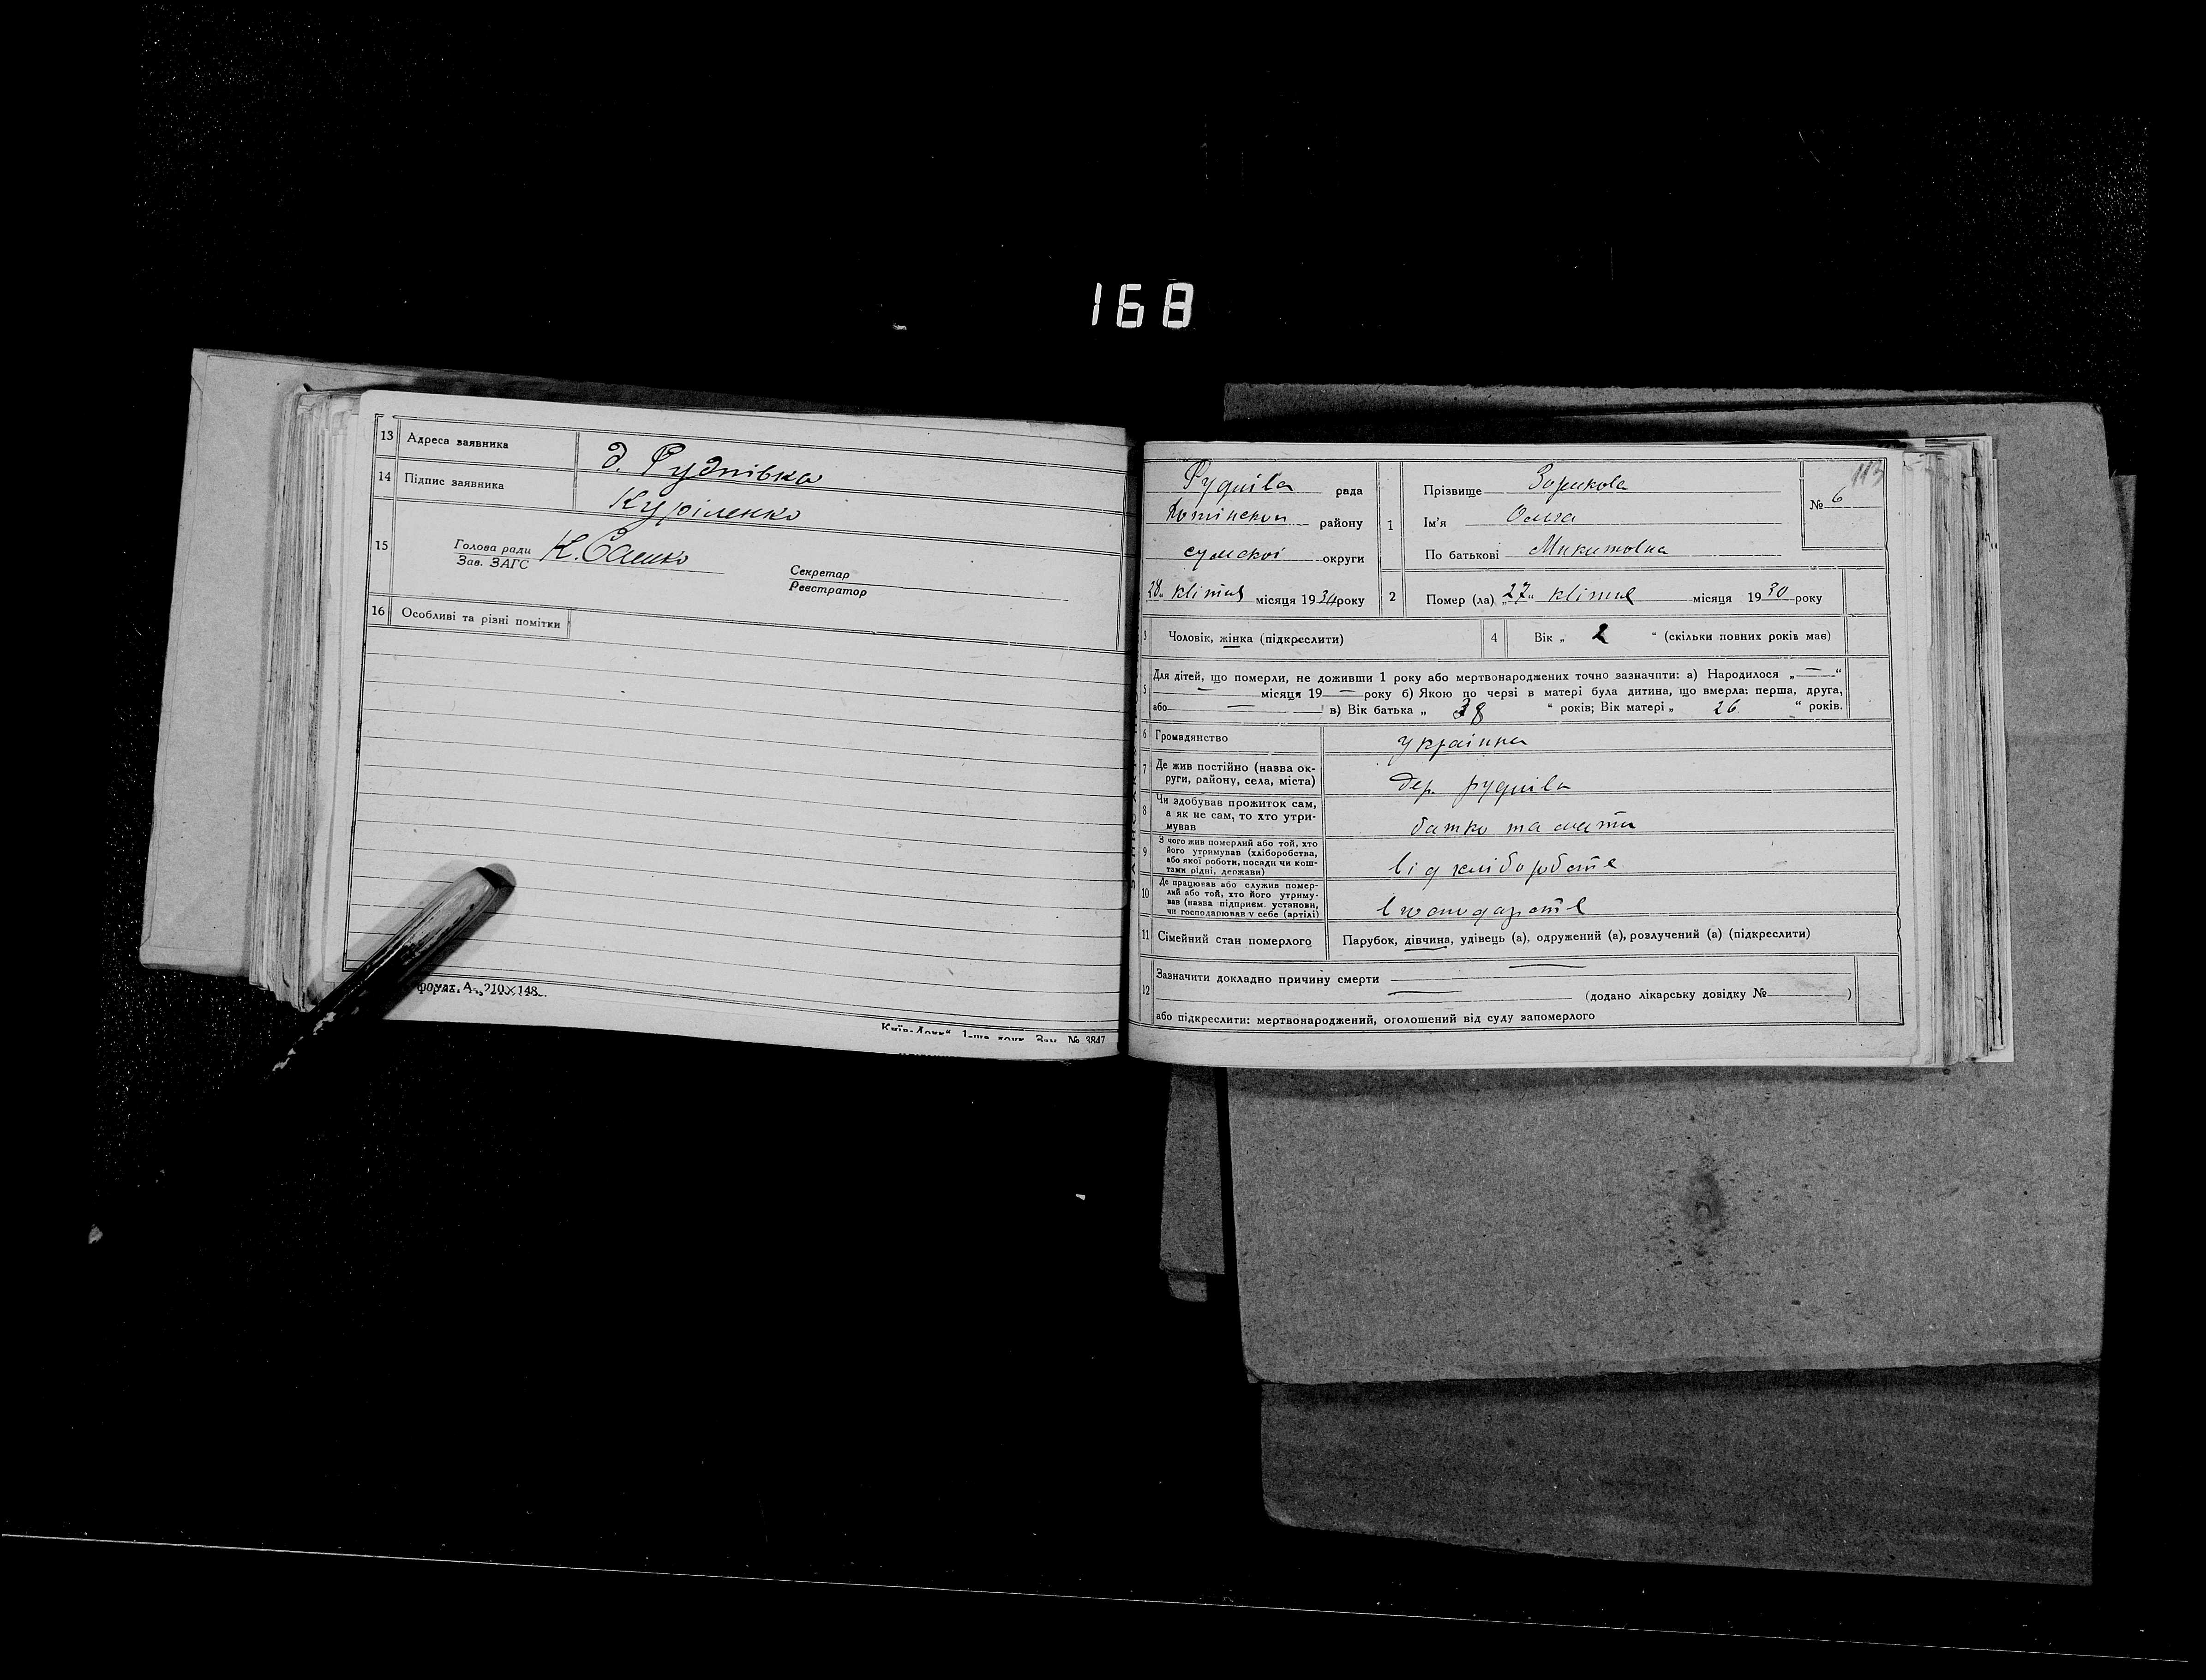 168
13 Адреса заявника д. Руднівка
14 Підпис заявника Куріленко
15 Голова ради
Зав. ЗАГС
Секретар
Реєстратор
16 Особливі та різні помітки
Формат А₅ 210×148
1-ша друк. Зам. № 3847
113
рада
району
сумскої округи
28 квітня місяця 1930 року
1 Прізвище
Ім'я Ольга
По батькові Микитовна
№ 6
2 Помер (ла) „27“ квітня місяця 1930 року
3 Чоловік, жінка (підкреслити)
4 Вік „ 2 “ (скільки повних років має)
5 Для дітей, що померли, не доживши 1 року або мертвонароджених точно зазначити: а) Народилося „—“
— місяця 19 — року б) Якою по черзі в матері була дитина, що вмерла: перша, друга,
або — в) Вік батька „ 38 “ років; Вік матері „ 26 “ років.
6 Громадянство українка
7 Де жив постійно (назва ок-
руги, району, села, міста) дер.
8 Чи здобував прожиток сам,
а як не сам, то хто утри-
мував батько та мати
9 З чого жив померлий або той, хто
його утримував (хліборобства,
або якої роботи, посади чи кош-
тами рідні, держави) від
10 Де працював або служив помер-
лий або той, хто його утриму-
вав (назва підприєм. установи,
чи господарював у себе (артілі)
11 Сімейний стан померлого Парубок, дівчина, удівець (а), одружений (а), розлучений (а) (підкреслити)
12 Зазначити докладно причину смерти —
— (додано лікарську довідку № )
або підкреслити: мертвонароджений, оголошений від суду запомерлого